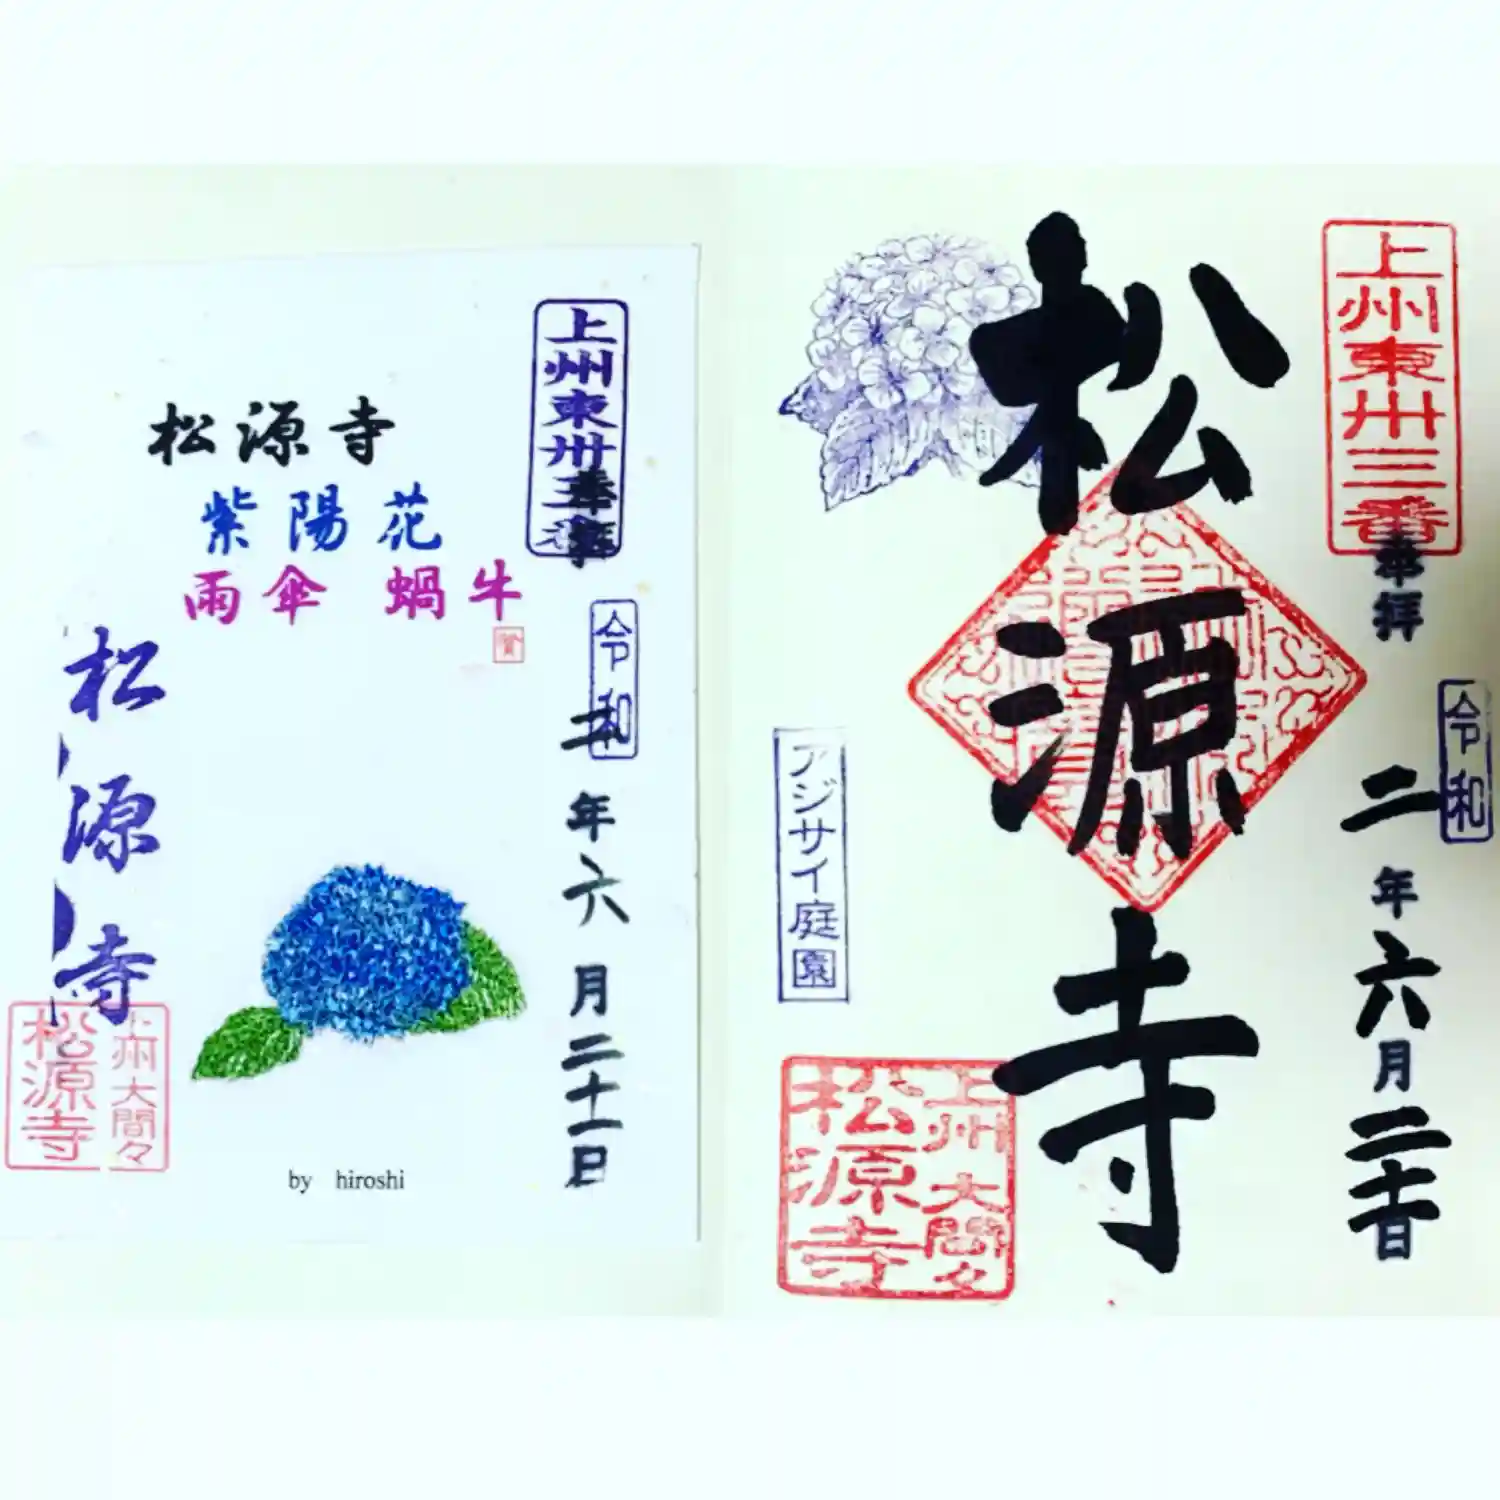 松源寺
紫陽花
雨傘 蝸牛
上州東卅三番
奉拝
令和
二年六月二十一日
松源寺
上州大間々
松源寺
by hiroshi
上州東卅三番
奉拝
令和
二年六月二十一日
松源寺
アジサイ庭園
上州大間々
松源寺